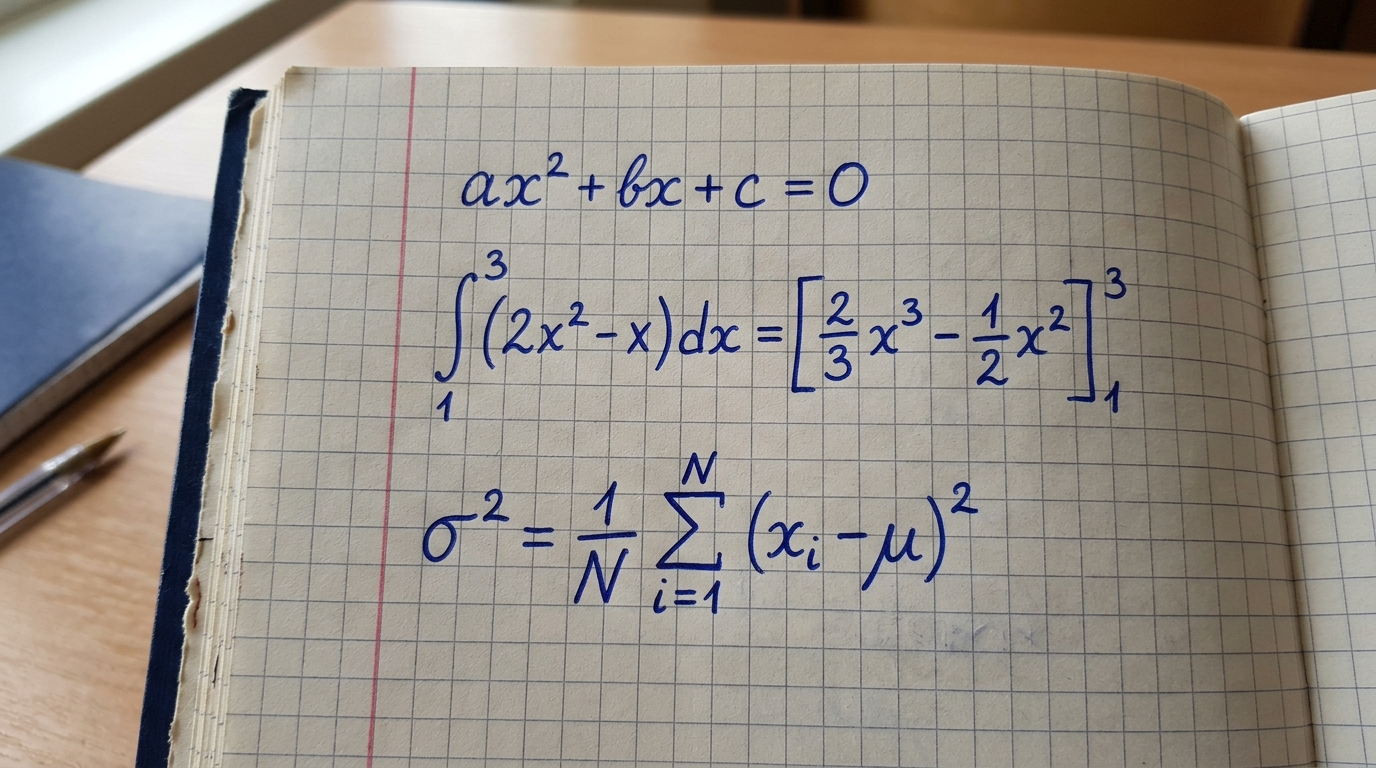 ax² + bx + c = 0
∫₁³ (2x² − x) dx = [2/3 x³ − 1/2 x²]₁³
σ² = 1/N ∑ᵢ₌₁ᴺ (xᵢ − μ)²